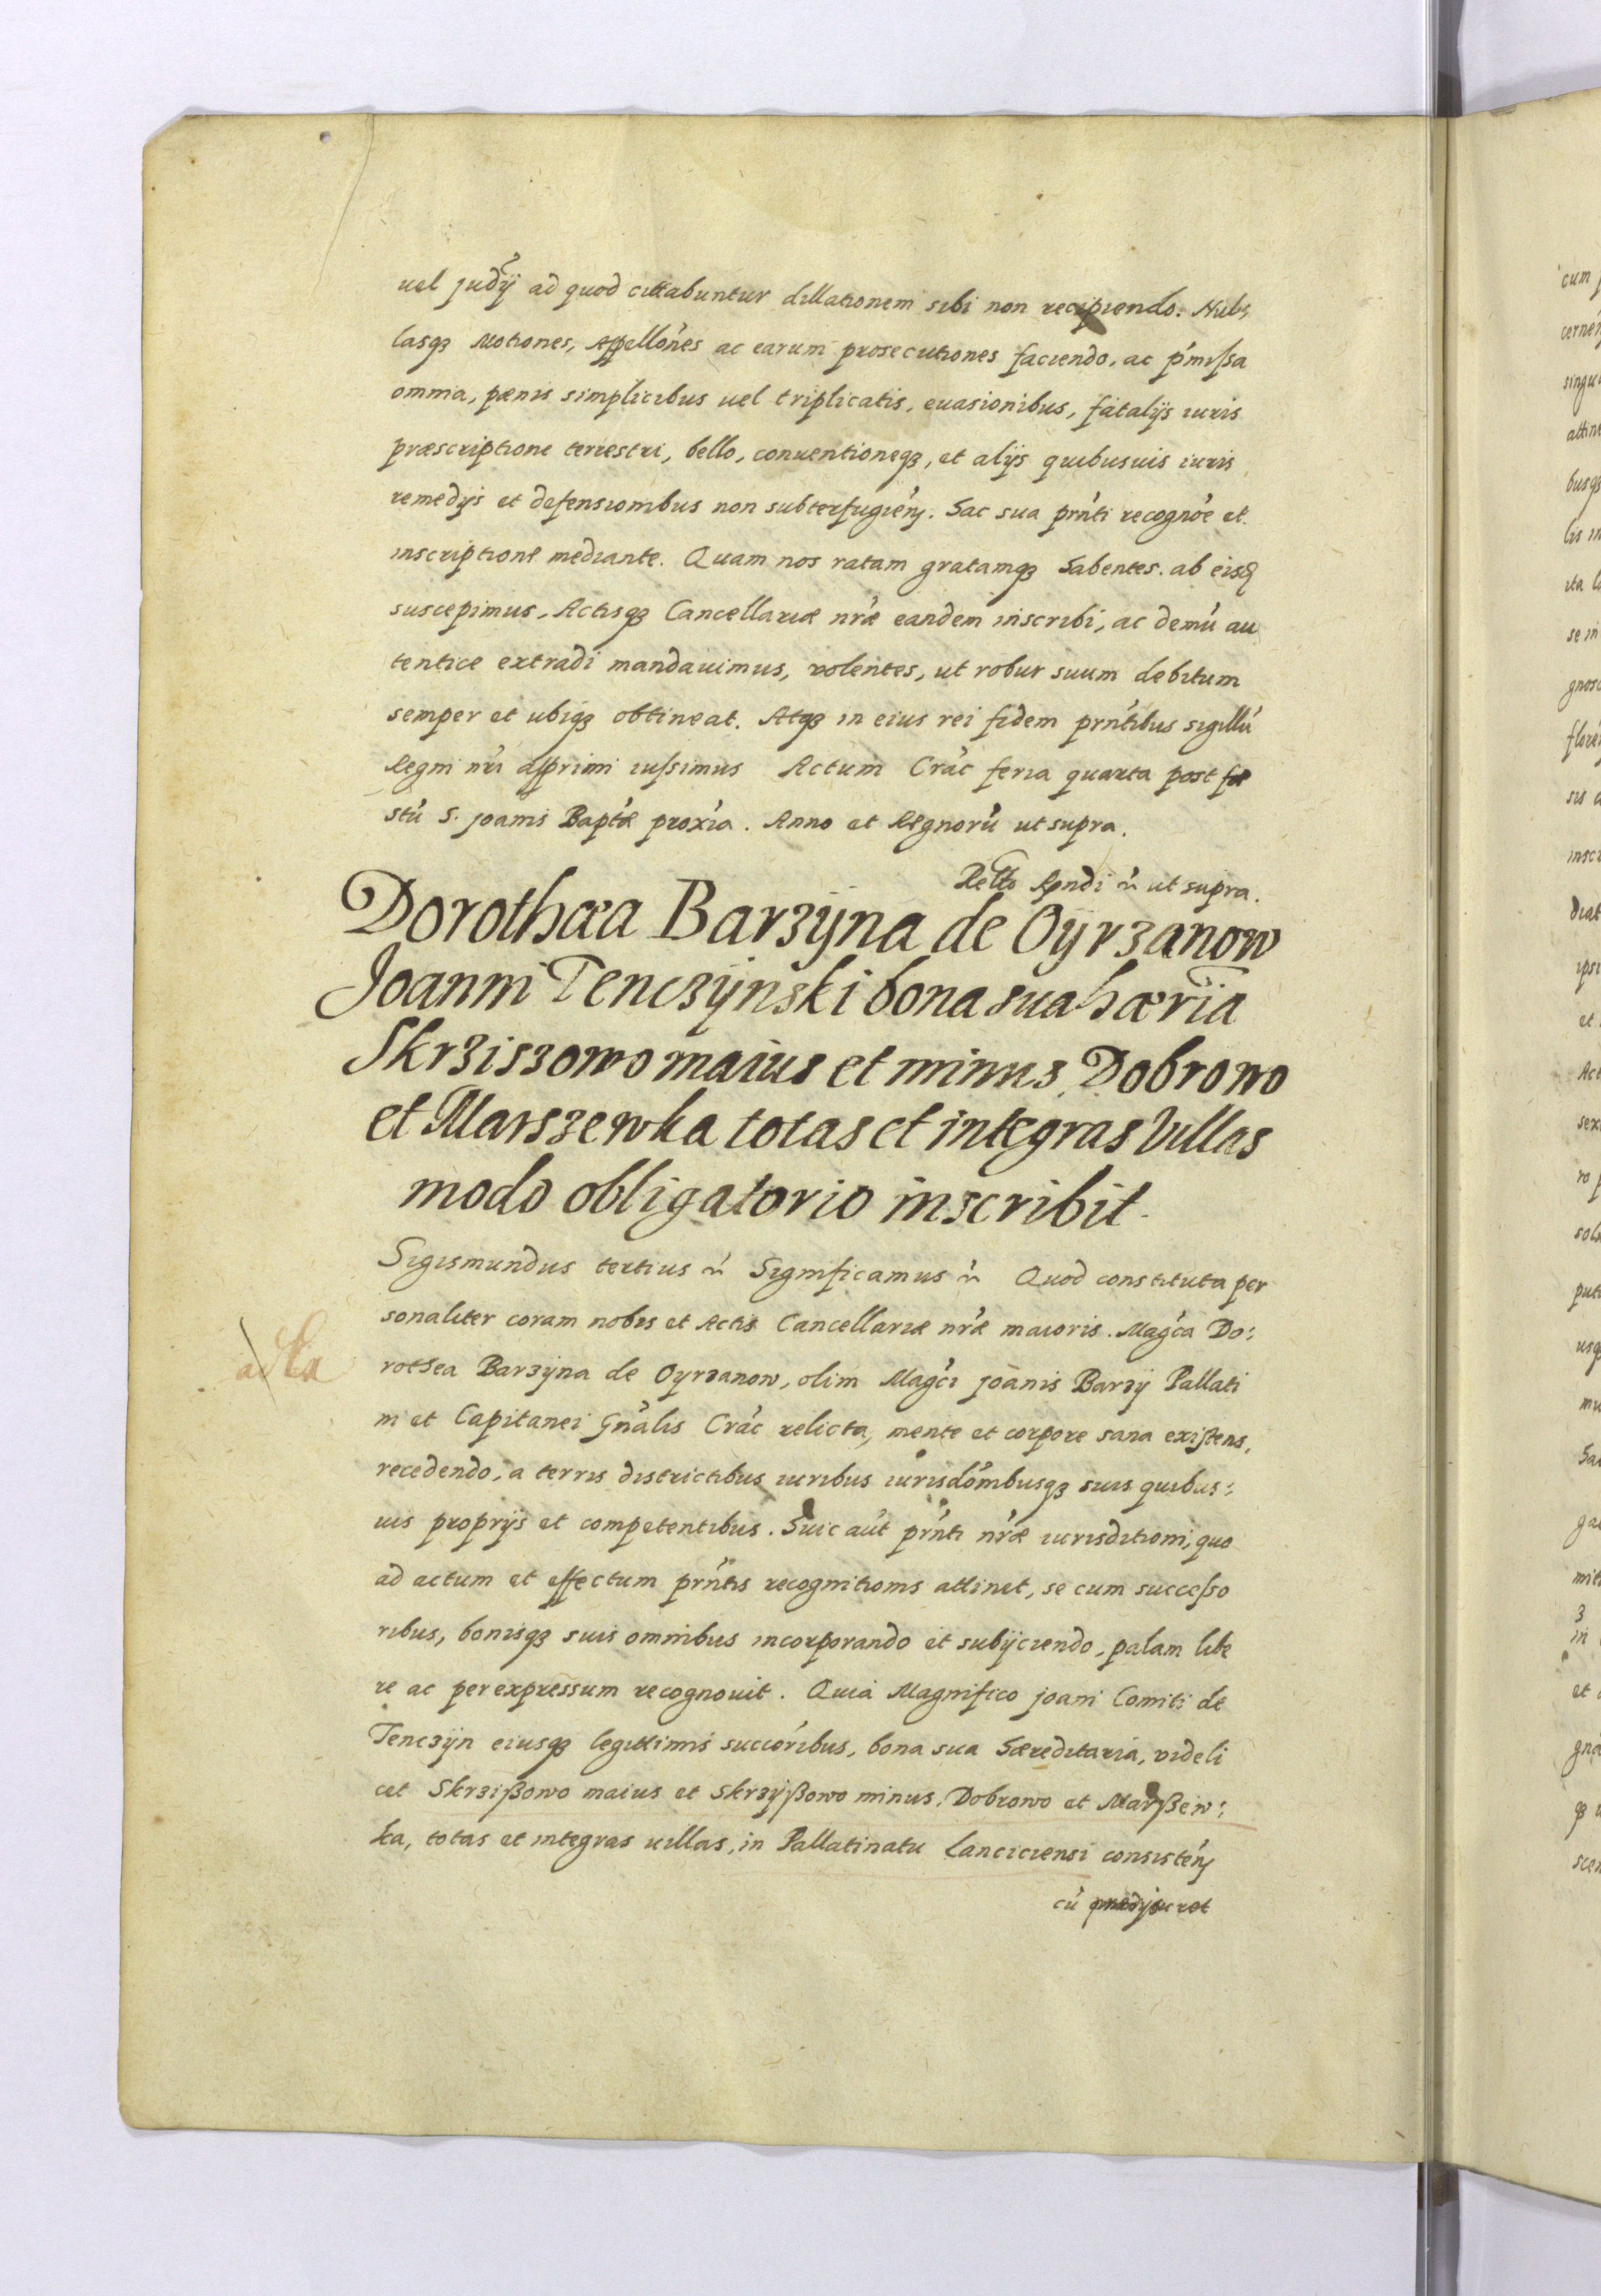 uel judÿ ad quod cittabuntur dillationem sibi non recipiendo. Nul:
lasqz Motiones, Appellónes ac earum prosecutiones faciendo, ac pŕmissa
omnia, pænis simplicibus uel triplicatis, euasionibus, fatalÿs iuris
præscriptione terrestri, bello, conuentioneqz, et alÿs quibusuis iuris
remedÿs et defensionibus non subterfugień. Hac sua prńti recognóe et
inscriptione mediante. Quam nos ratam gratamqz habentes. ab eisd
suscepimus, Actisqz Cancellariæ nŕæ eandem inscribi, ac demú au
tentice extradi mandauimus, volentes, ut robur suum debitum
semper et ubiqz obtineat. Atqz in eius rei fidem prńtibus sigillú
Regni nŕi apprimi iussimus Actum Crác feria quarta post fe
stú S. joanis Baptæ próxia. Anno et Regnorú ut supra.
Relto Rpndi ut supra.
Dorothæa Barzÿna de Oÿrzanow
Joanni Tenczÿnski bona sua hæria
Skrziszowo maius et minus, Dobrowo
et Marszewka totas et integras Villas
modo obligatorio inscribit.
Sigismundus tertius Significamus Quod constituta per
sonaliter coram nobis et Actis Cancellariæ nŕæ maioris. Magća Do:
rothea Barzÿna de Oyrzanow, olim Magći joanis Barzÿ Pallati
ni et Capitanei Gńalis Crác relicta, mente et corpore sana existens,
recedendo, a terris districtibus iuribus iurisdónibusqz suis quibus:
uis proprÿs et competentibus. Huic aút prńti nŕæ iurisditioni, quo
ad actum et effectum prńtis recognitionis attinet, se cum successo
ribus, bonisqz suis omnibus incorporando et subÿciendo, palam libe
re ac per expressum recognouit. Quia Magnifico joani Comiti de
Tenczÿn eiusqz legittimis succóribus, bona sua hæreditaria, videli
cet Skrzißowo maius et Skrzÿßowo minus, Dobrowo et Marßew:
ka, totas et integras uillas, in Pallatinatu Lanciciensi consisteń
cú